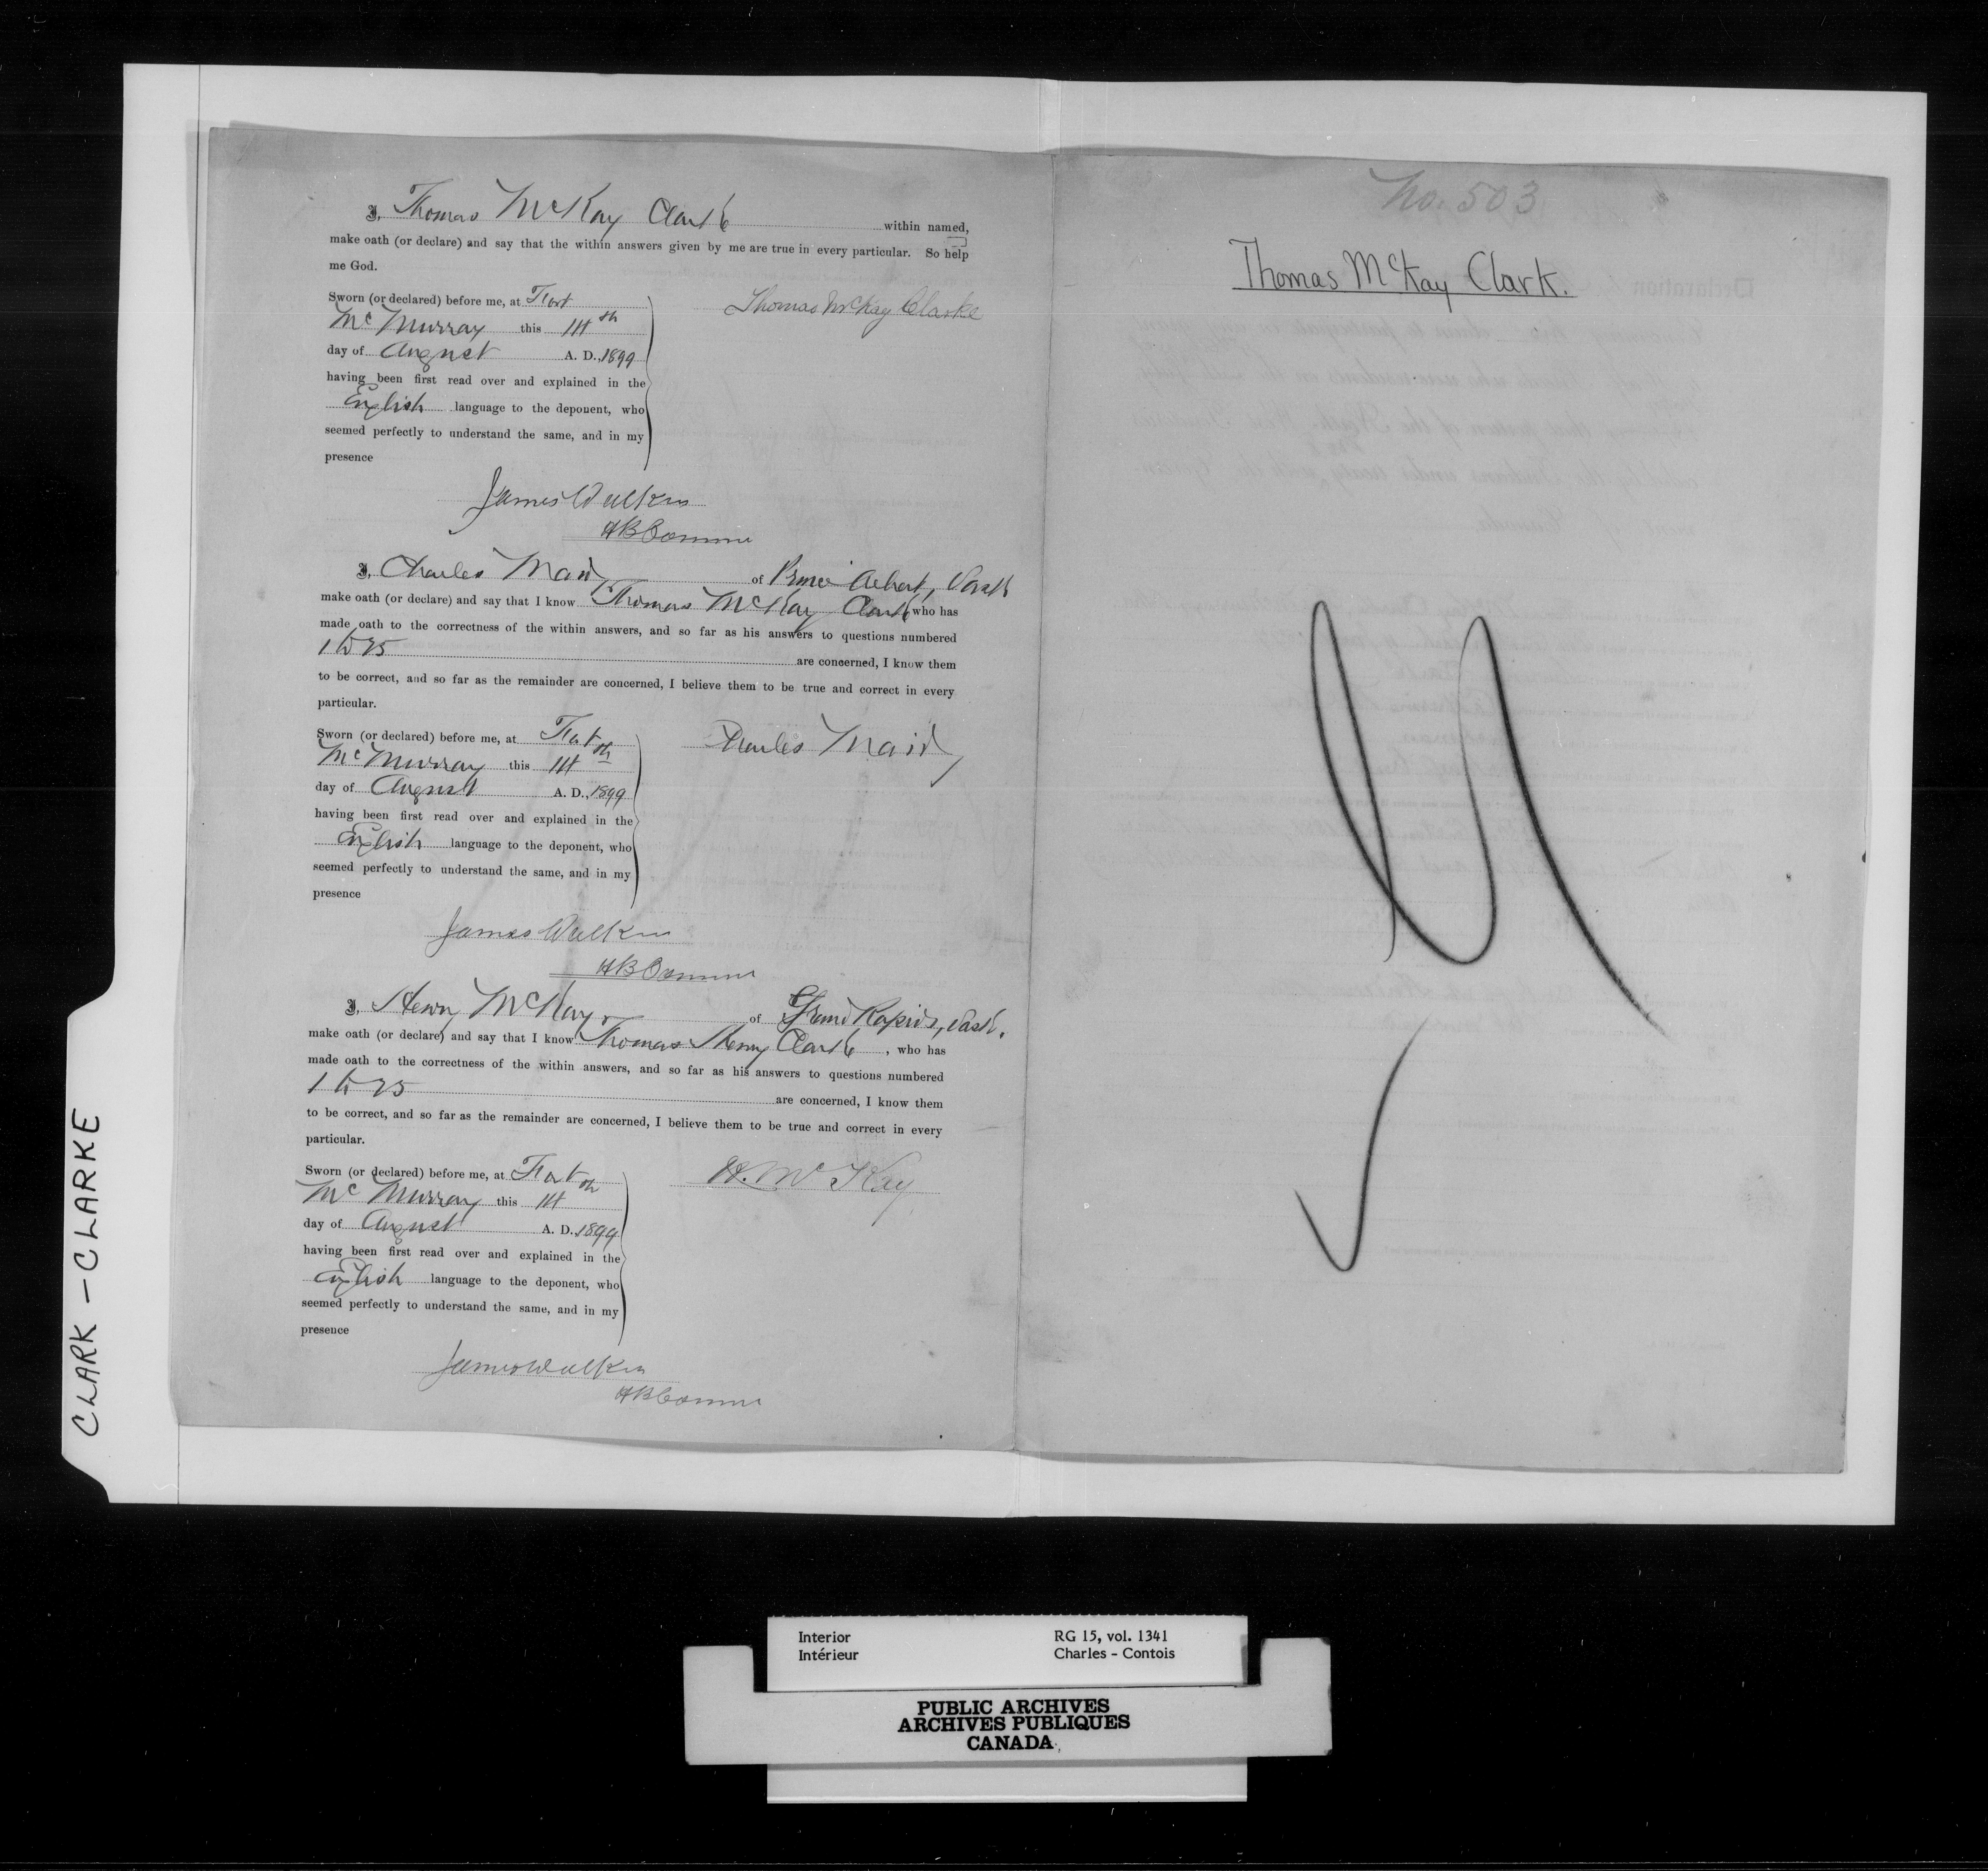 I, Thomas McKay Clark within named,
make oath (or declare) and say that the within answers given by me are true in every particular. So help
me God.
Sworn (or declared) before me, at Fort
McMurray this 14th
day of August A. D., 1899
having been first read over and explained in the
English language to the deponent, who
seemed perfectly to understand the same, and in my
presence
Thomas McKay Clarke
James Walker
HB Commr
I, Charles Mair of Prince Albert, Sask
make oath (or declare) and say that I know Thomas McKay Clark who has
made oath to the correctness of the within answers, and so far as his answers to questions numbered
1 to 25 are concerned, I know them
to be correct, and so far as the remainder are concerned, I believe them to be true and correct in every
particular.
Sworn (or declared) before me, at Fort
McMurray this 14th
day of August A. D., 1899
having been first read over and explained in the
English language to the deponent, who
seemed perfectly to understand the same, and in my
presence
Charles Mair
James Walker
HB Commr
I, Henry McKay of Grand Rapids, Sask.
make oath (or declare) and say that I know Thomas Henry Clark, who has
made oath to the correctness of the within answers, and so far as his answers to questions numbered
1 to 25 are concerned, I know them
to be correct, and so far as the remainder are concerned, I believe them to be true and correct in every
particular.
Sworn (or declared) before me, at Fort
McMurray this 14th
day of August A. D. 1899
having been first read over and explained in the
English language to the deponent, who
seemed perfectly to understand the same, and in my
presence
H. McKay
James Walker
HB Commr
No. 503
Thomas McKay Clark.
CLARK - CLARKE
Interior RG 15, vol. 1341
Intérieur Charles - Contois
PUBLIC ARCHIVES
ARCHIVES PUBLIQUES
CANADA